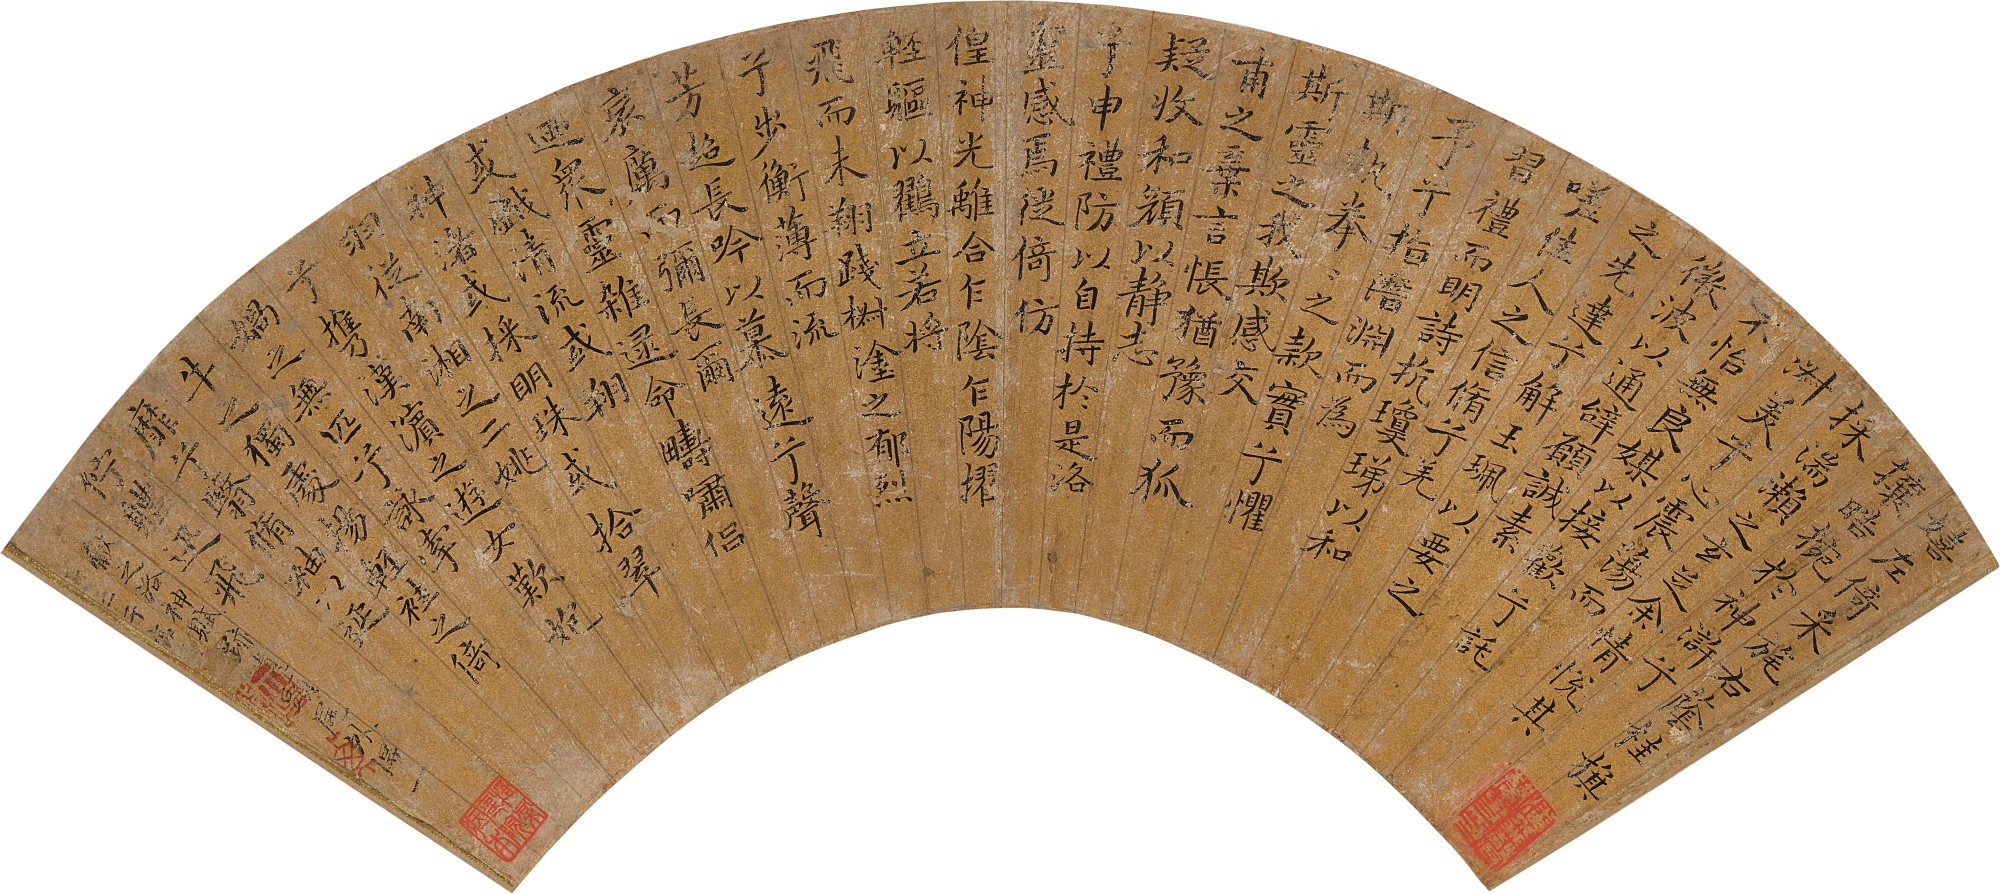 嬉左倚采旄右蔭桂旗
攘皓捥於神滸兮
採湍瀨之玄芝余情悅其
淋美兮心震蕩而
不怡無良媒以接歡兮託
微波以通辭願誠素
之先達兮解玉珮以要之
嗟佳人之信脩兮羌
習禮而明詩抗瓊珶以和
予兮指潛淵而為
斯執眷〻之款實兮懼
斯靈之我欺感交
甫之棄言悵猶豫而狐
疑收和顏以静志
兮申禮防以自持於是洛
靈感焉徙倚仿
偟神光離合乍陰乍陽擢
輕軀以鶴立若將
飛而未翔踐椒塗之郁烈
兮步衡薄而流
芳超長吟以慕遠兮聲
哀厲而彌長爾
迺眾靈雜遝命疇嘯侶
或戲清流或翔
神渚或採明珠或拾翠
羽從南湘之二姚
兮攜漢濱之遊女歎匏
媧之無匹兮詠牽
牛之獨處揚輕袿之倚
靡兮翳脩袖以延
佇體迅飛
獻之洛神賦跡